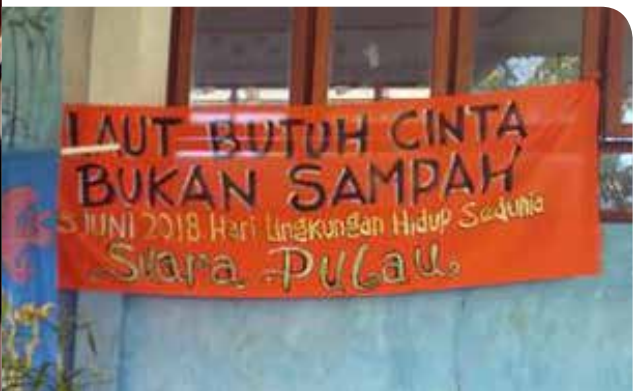 LAUT BUTUH CINTA
BUKAN SAMPAH
5 JUNI 2018 Hari Lingkungan Hidup Sedunia
Suara Pulau